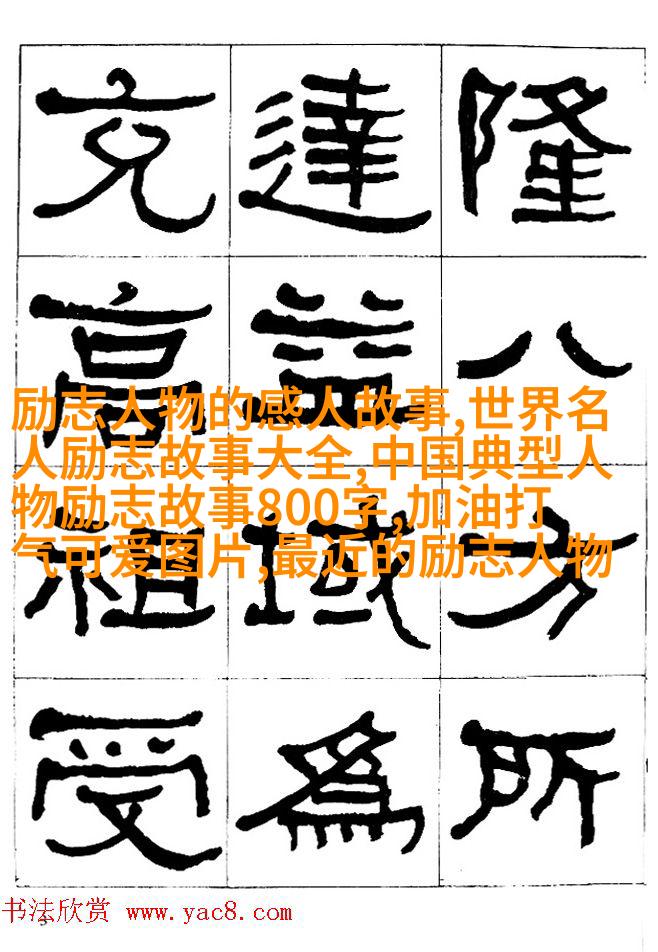 隆八方所
達益域為
充高祖受
励志人物的感人故事,世界名
人励志故事大全,中国典型人
物励志故事800字,加油打
气可爱图片,最近的励志人物
书法欣赏 www.yac8.com
3